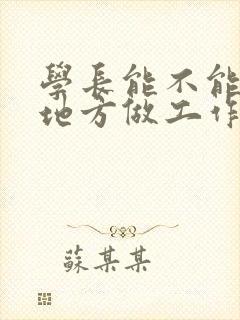 學長能不能
地方做工作
蘇某某